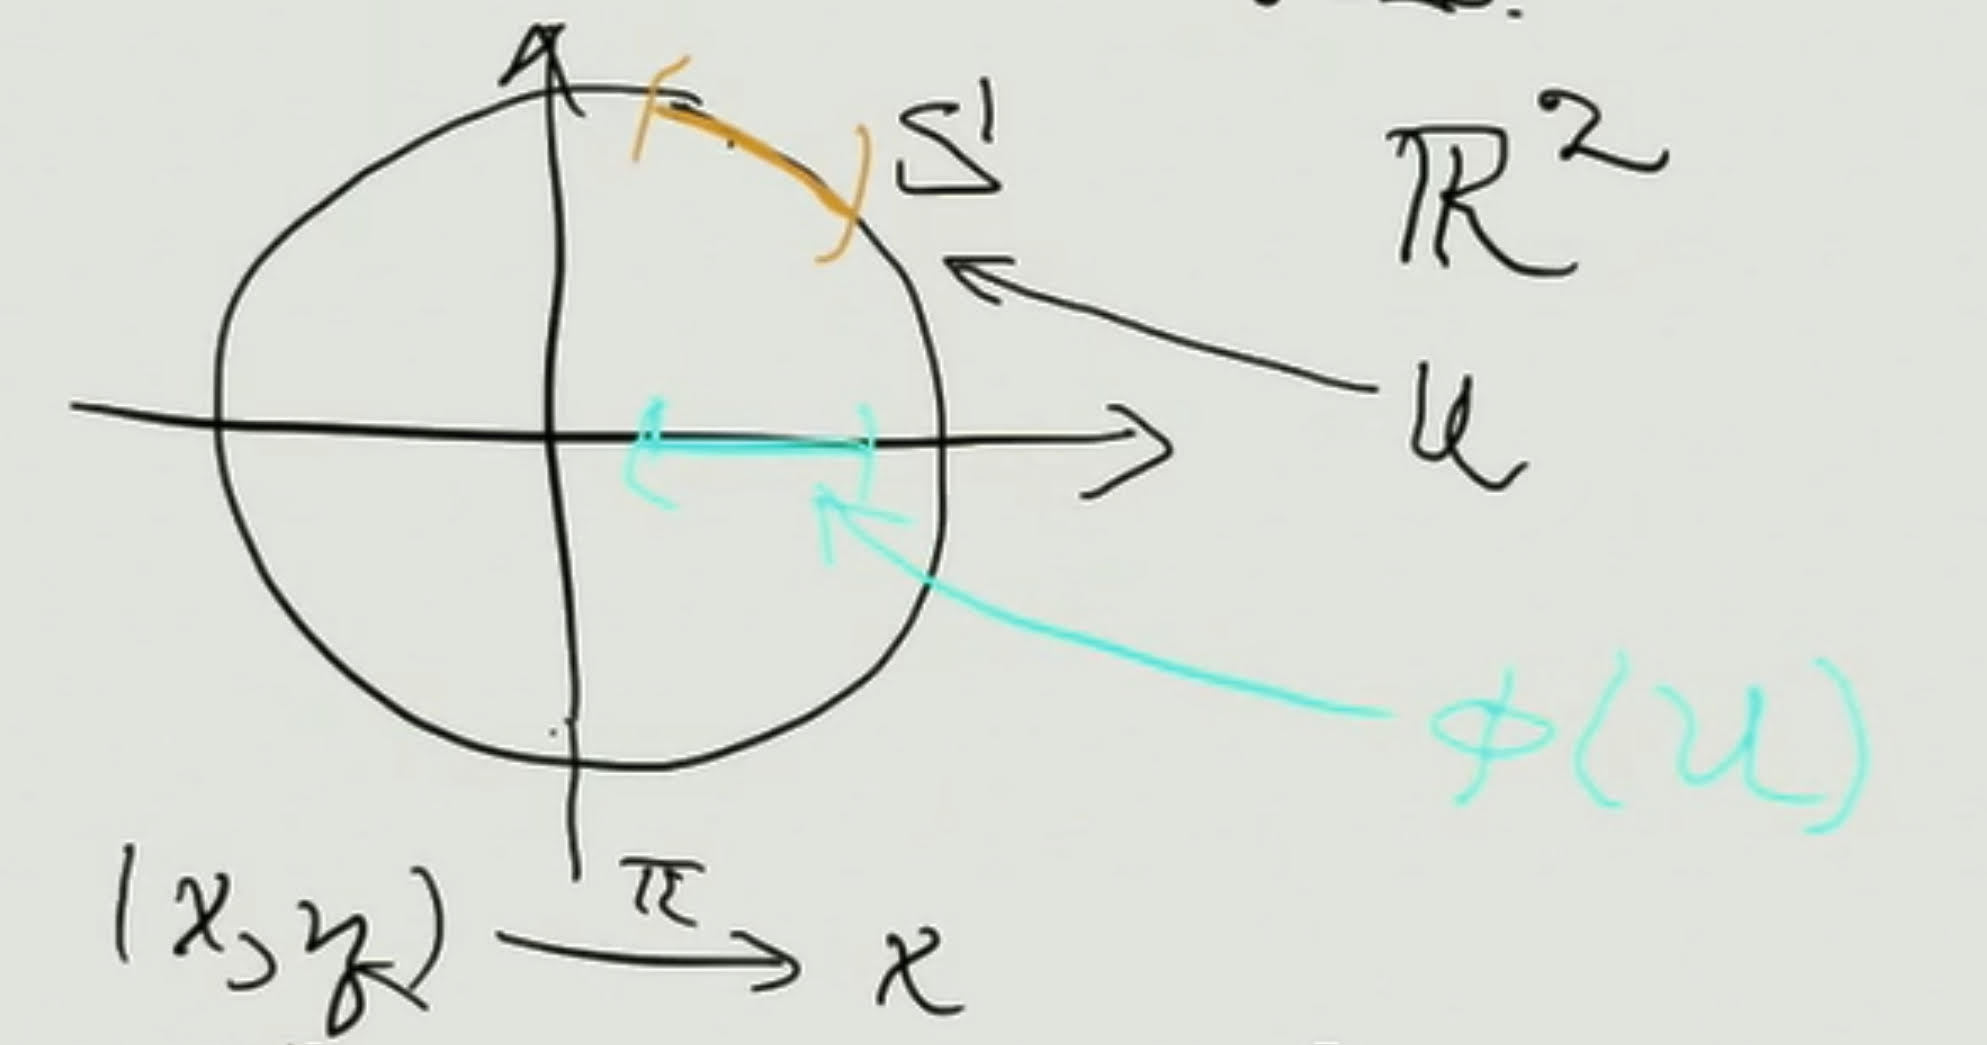 S¹
ℝ²
U
ϕ(U)
(x, y) π→ x